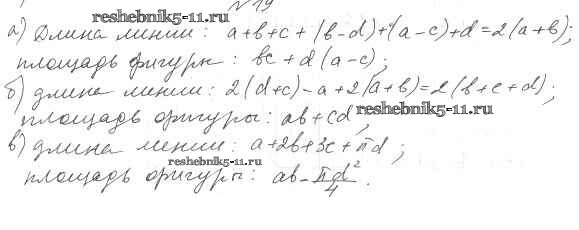 № 19
reshebnik5-11.ru
а) Длина линии: a+b+c+(b-d)+(a-c)+d=2(a+b);
площадь фигуры: bc+d(a-c);
б) длина линии: 2(d+c)-a+2(a+b)=2(b+c+d);
площадь фигуры: ab+cd;
reshebnik5-11.ru
в) длина линии: a+2b+3c+πd;
reshebnik5-11.ru
площадь фигуры: ab-πd²/4.